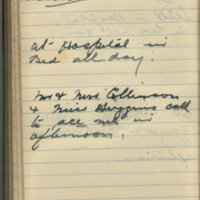 at Hospital in
Bed all day.
Mr & Mrs Collinson
& Miss Huggins call
to see me in
afternoon.